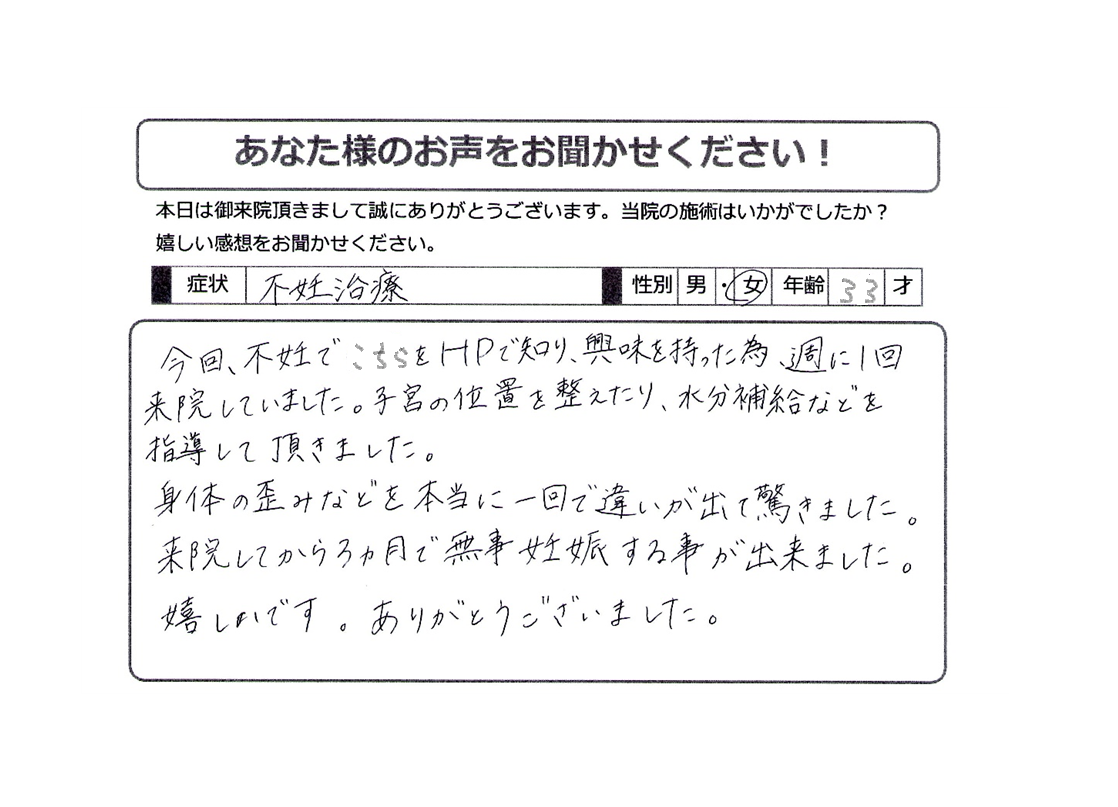 あなた様のお声をお聞かせください！
本日は御来院頂きまして誠にありがとうございます。当院の施術はいかがでしたか？
嬉しい感想をお聞かせください。
症状 不妊治療 性別 男・女 年齢 33 才
今回、不妊でこちらをHPで知り、興味を持った為、週に1回
来院していました。子宮の位置を整えたり、水分補給などを
指導して頂きました。
身体の歪みなどを本当に一回で違いが出て驚きました。
来院してから3ヵ月で無事妊娠する事が出来ました。
嬉しいです。ありがとうございました。